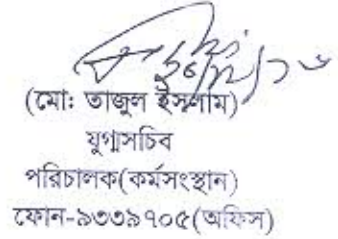 (মো: তাজুল ইসলাম)
যুগ্মসচিব
পরিচালক(কর্মসংস্থান)
ফোন-৯৩৩৯৭০৫(অফিস)